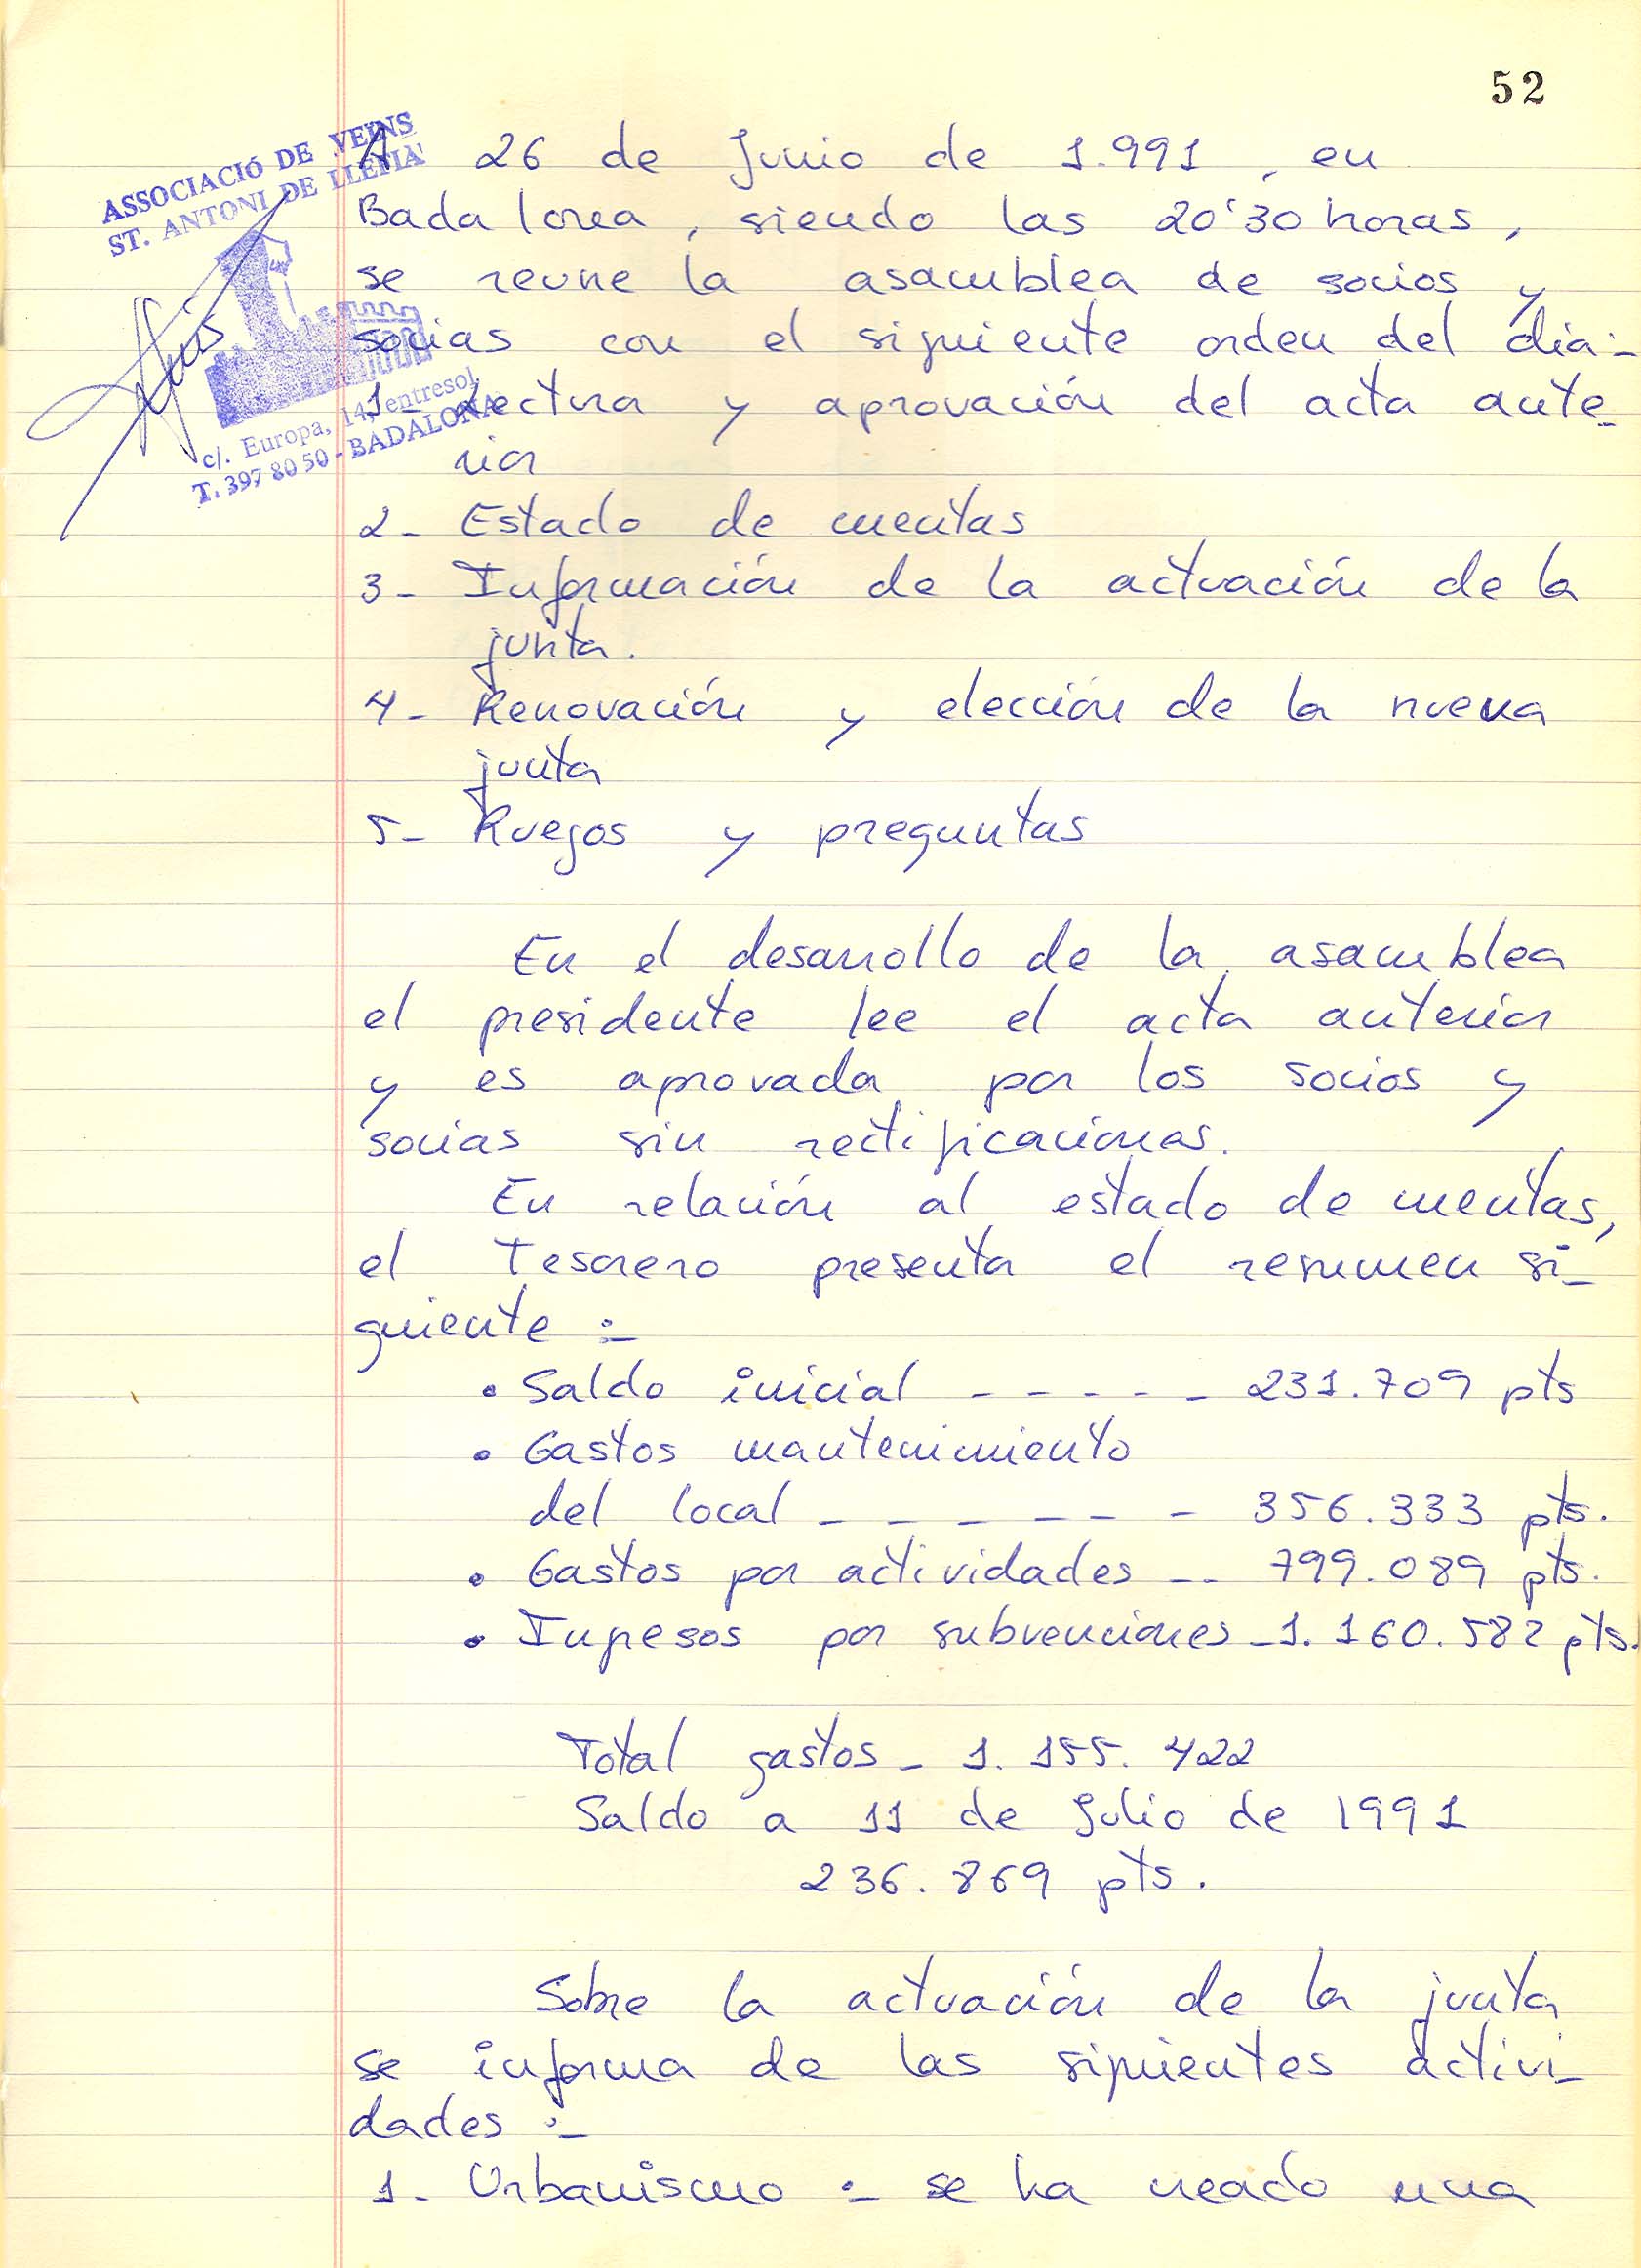 52
ASSOCIACIÓ DE VEÏNS
ST. ANTONI DE LLEFIÀ
c/. Europa, 14, entresol
T. 397 80 50 - BADALONA
A 26 de Junio de 1.991, en
Badalona, siendo las 20'30 horas,
se reune la asamblea de socios y
socias con el siguiente orden del dia:-
1- Lectura y aprovación del acta ante-
rior
2- Estado de cuentas
3- Información de la actuación de la
junta.
4- Renovación y elección de la nueva
junta
5- Ruegos y preguntas
En el desarrollo de la asamblea
el presidente lee el acta anterior
y es aprovada por los socios y
socias sin rectificaciones.
En relación al estado de cuentas,
el Tesorero presenta el resumen si-
guiente :-
• Saldo inicial - - - - - 231.709 pts
• Gastos mantenimiento
del local - - - - - - 356.333 pts.
• Gastos por actividades -- 799.089 pts.
• Ingresos por subvenciones - 1.160.582 pts.
Total gastos - 1.155.422
Saldo a 11 de Julio de 1991
236.869 pts.
Sobre la actuación de la junta
se informa de las siguientes activi-
dades :-
1- Urbanismo :- se ha creado una